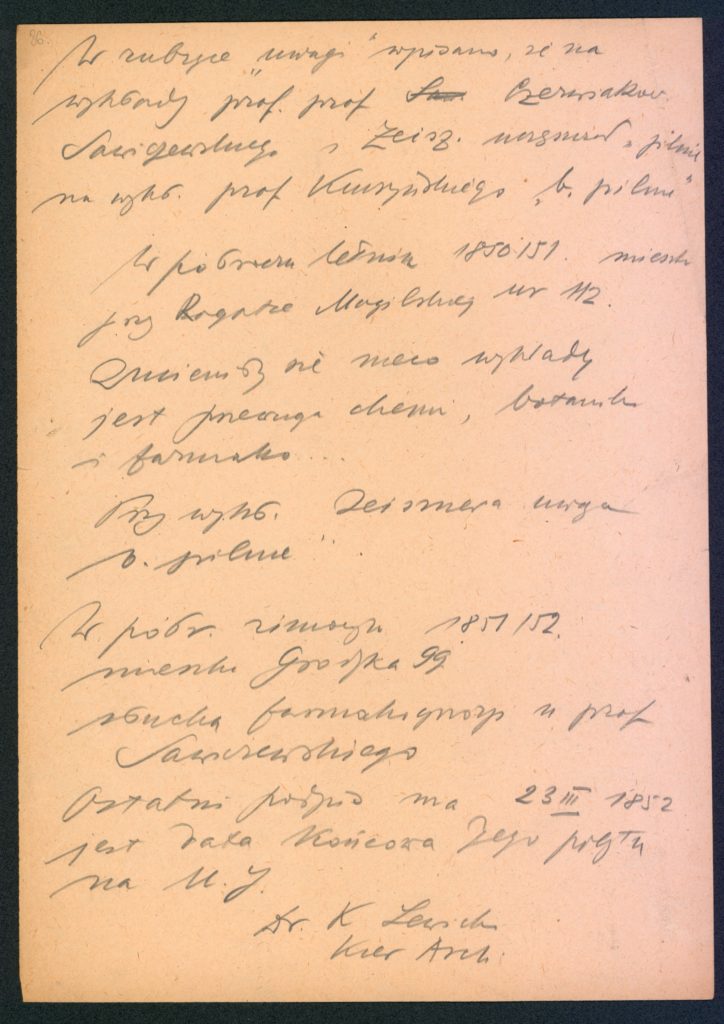 36.
W rubryce „uwagi” wpisano, że na
wykłady prof. prof Czerwiakow.
Sawiczewskiego i Zeisz. uczęszczał „pilnie
na wykł. prof Kuczyńskiego „b. pilnie”
W półroczu letnim 1850/51. mieszka
przy Rogatce Mogilskiej nr 112.
Zmieniły się nieco wykłady
jest przewaga chemii, botaniki
i farmako...
Przy wykł. Zeisznera uwaga
b. pilnie”
W półr. zimowym 1851/52.
mieszka Grodzka 99
słucha farmakognozji u prof
Sawiczewskiego
Ostatni podpis ma 23 III 1852
jest data końcowa Jego pobytu
na U. J.
Dr. K Lewicki
Kier Arch.